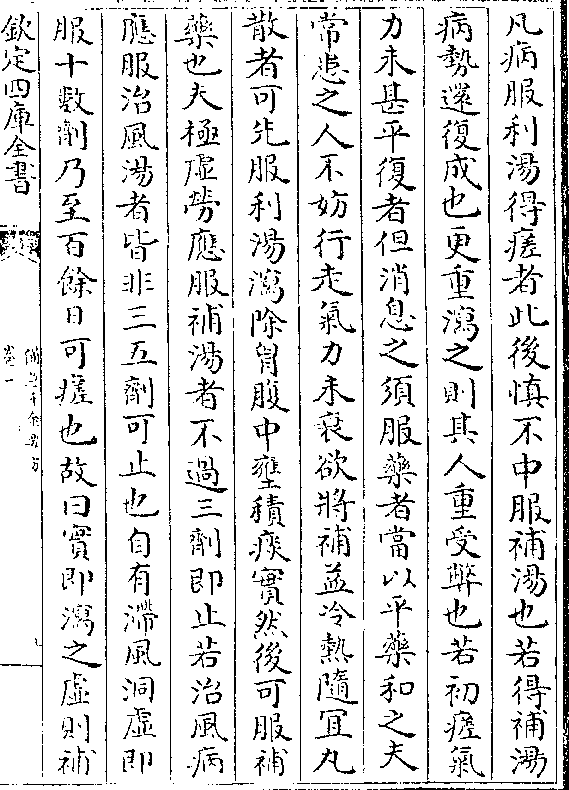 凡病服利湯得瘥者此後慎不中服補湯也若得補湯
病勢還復成也更重瀉之則其人重受弊也若初瘥氣
力未甚平復者但消息之須服藥者當以平藥和之夫
常患之人不妨行走氣力未衰欲將補益冷熱隨宜丸
散者可先服利湯瀉除胷腹中壅積痰實然後可服補
藥也夫極虛勞應服補湯者不過三劑即止若治風病
應服治風湯者皆非三五劑可止也自有滯風洞虛即
服十數劑乃至百餘日可瘥也故曰實即瀉之虛則補
欽定四庫全書
卷一